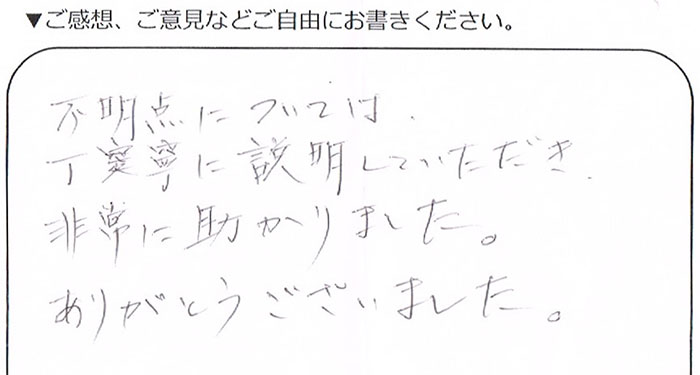 ▼ご感想、ご意見などご自由にお書きください。
不明点については、
丁寧に説明していただき、
非常に助かりました。
ありがとうございました。